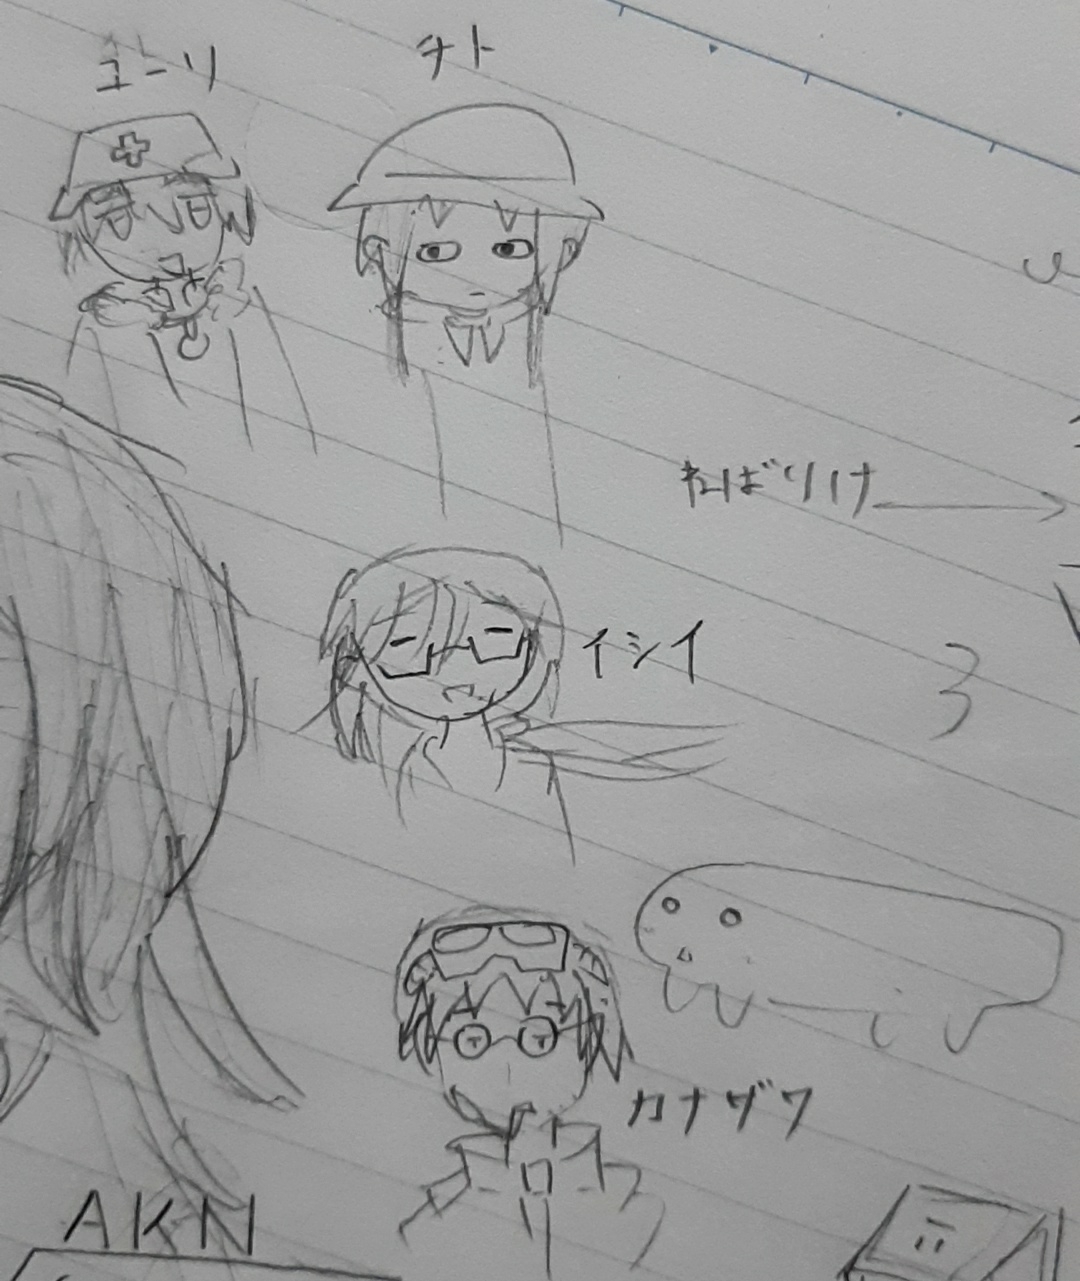 ユーリ
チト
ねばりけ
イシイ
カナザワ
AKN